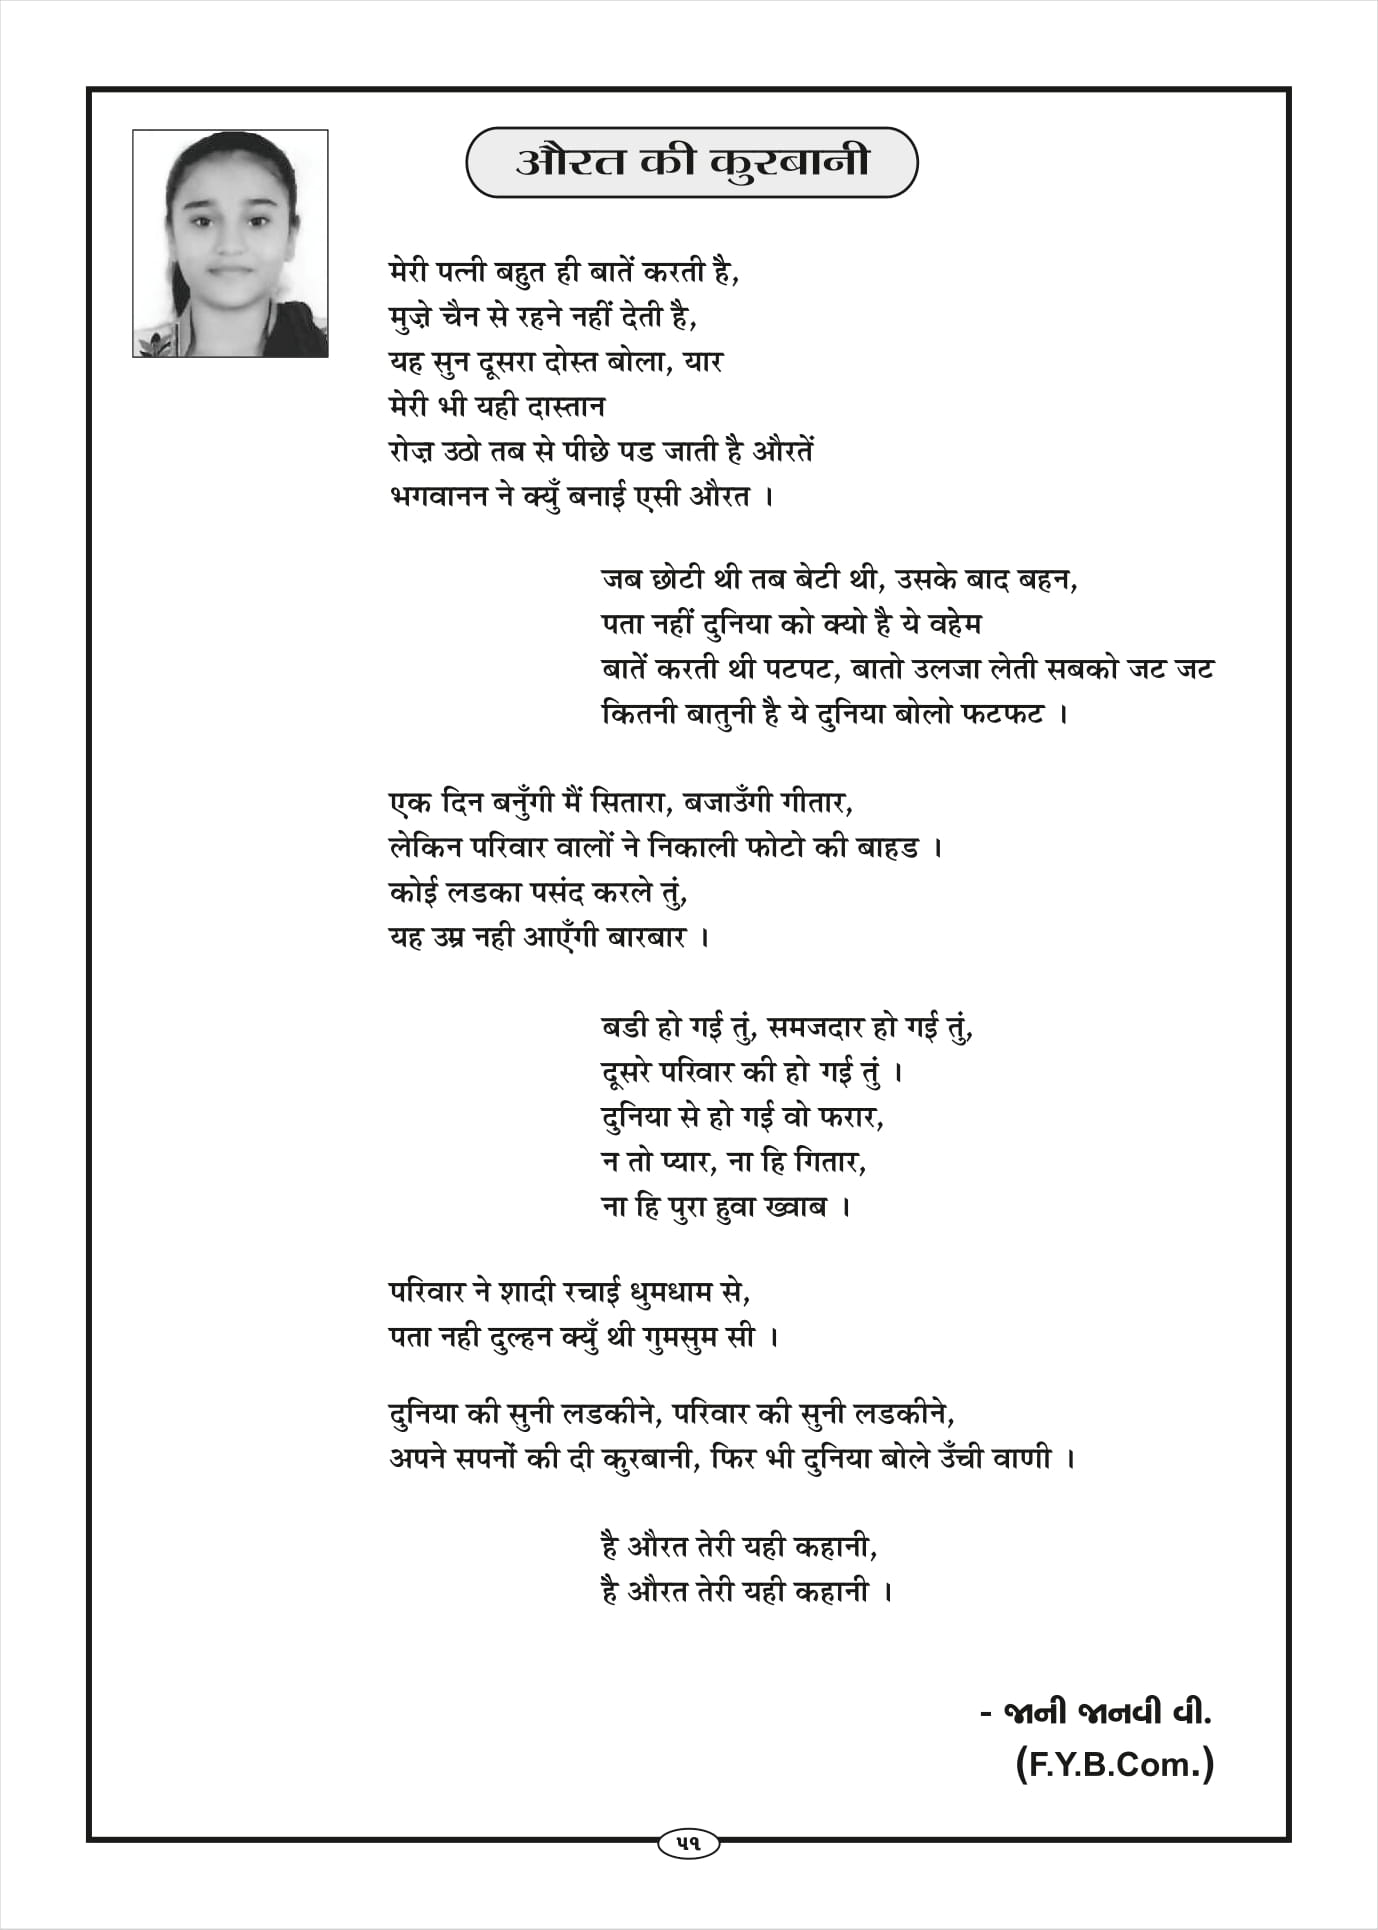 औरत की कुरबानी
मेरी पत्नी बहुत ही बातें करती है,
मुज़े चैन से रहने नहीं देती है,
यह सुन दूसरा दोस्त बोला, यार
मेरी भी यही दास्तान
रोज़ उठो तब से पीछे पड जाती है औरतें
भगवानन ने क्युँ बनाई एसी औरत ।
जब छोटी थी तब बेटी थी, उसके बाद बहन,
पता नहीं दुनिया को क्यो है ये वहेम
बातें करती थी पटपट, बातो उलजा लेती सबको जट जट
कितनी बातुनी है ये दुनिया बोलो फटफट ।
एक दिन बनुँगी मैं सितारा, बजाउँगी गीतार,
लेकिन परिवार वालों ने निकाली फोटो की बाहड ।
कोई लडका पसंद करले तुं,
यह उम्र नही आएँगी बारबार ।
बडी हो गई तुं, समजदार हो गई तुं,
दूसरे परिवार की हो गई तुं ।
दुनिया से हो गई वो फरार,
न तो प्यार, ना हि गितार,
ना हि पुरा हुवा ख्वाब ।
परिवार ने शादी रचाई धुमधाम से,
पता नही दुल्हन क्युँ थी गुमसुम सी ।
दुनिया की सुनी लडकीने, परिवार की सुनी लडकीने,
अपने सपनों की दी कुरबानी, फिर भी दुनिया बोले उँची वाणी ।
है औरत तेरी यही कहानी,
है औरत तेरी यही कहानी ।
- જાની જાનવી વી.
(F.Y.B.Com.)
૫૧